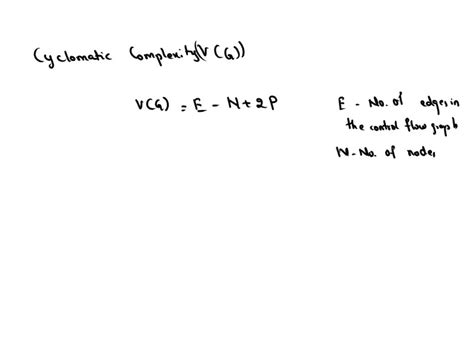 Cyclomatic Complexity(V(G))
V(G) = E - N + 2P
E - No. of edges in
the control flow graph
N - No. of nodes